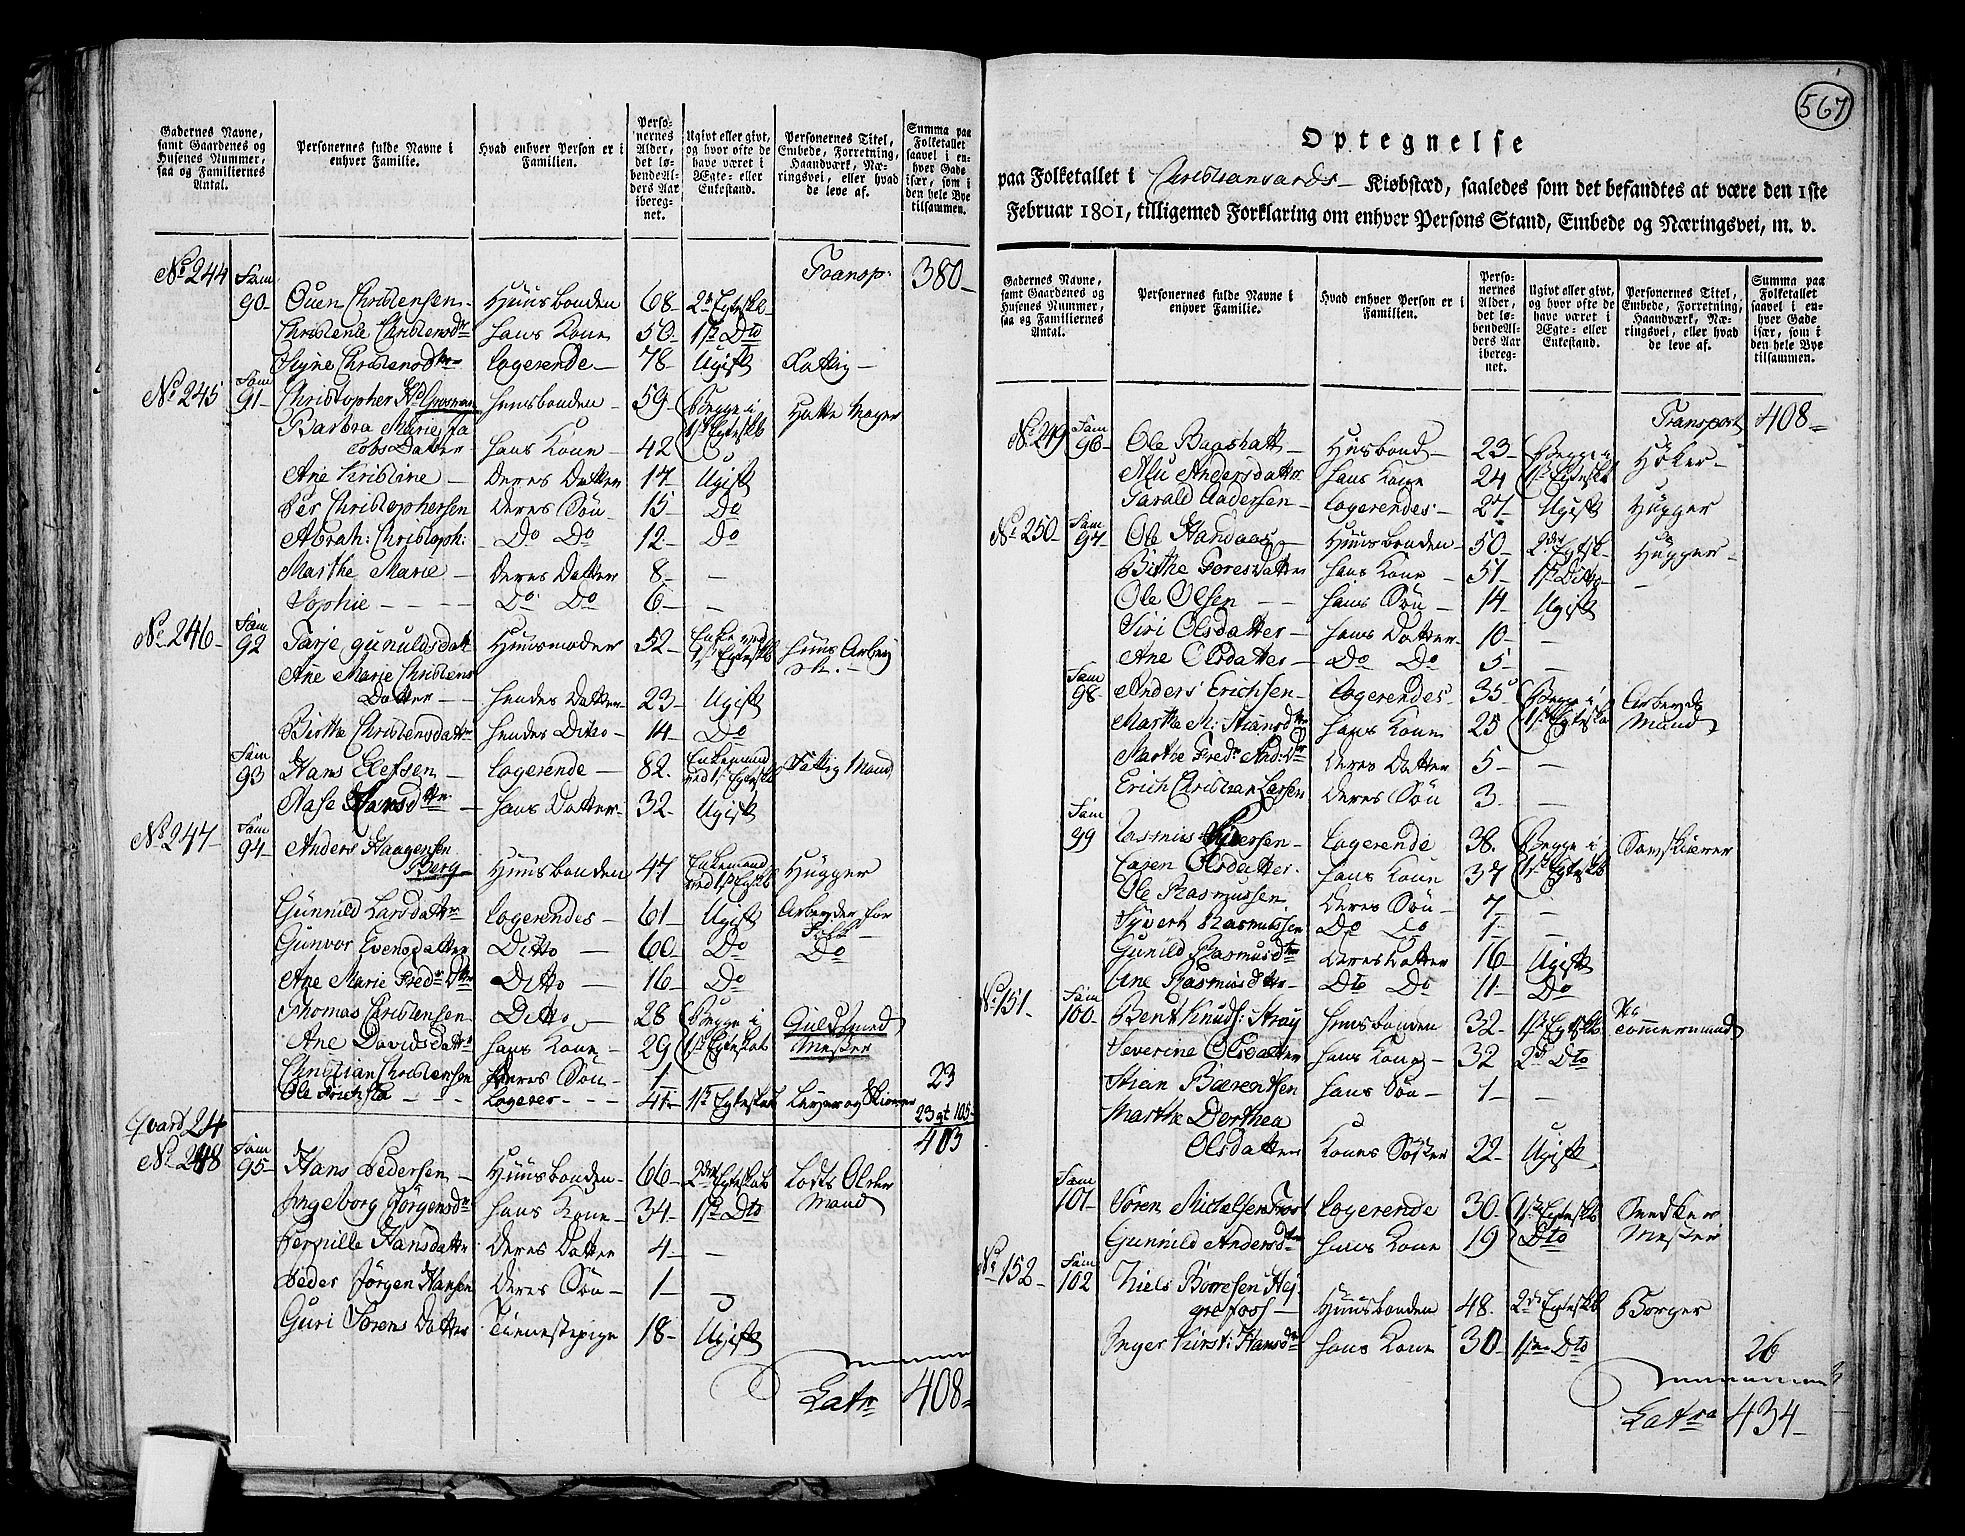 567
Gadernes Navne, samt Gaardenes og Husenes Nummer, saa og Familiernes Antal.
Personernes fulde Navne i enhver Familie.
Hvad enhver Person er i Familien.
Personernes Alder, det løbende Alders Aar iberegnet.
Ugivt eller givt, og hvor ofte de have været i Ægte- eller Enkestand.
Personernes Titel, Embede, Forretning, Haandværk, Næringsvei, eller hvad de leve af.
Summa paa Folketallet saavel i enhver Gade især, som i den hele Bye tilsammen.
Transp: 380
No 244 Fam 90 Ouen Christensen Huusbonden 68 2d Egteskb
Christense Christensdtr hans Kone 50 1ste Dto
Signe Christensdtr Logerende 78 Ugift Fattig
No 245 Fam 91 Christopher Hb Grosman Huusbonden 59 Begge i Hatte Mager
Barbra Marie Ja 1st Egteskb
cobs Datter hans Kone 42
Ane Kirstine Deres Datter 17 Ugift
Per Christophersen Deres Søn 15 Do
Abrah: Christoph: Do Do 12 Do
Marthe Marie Deres Datter 8 -
Sophie Do Do 6 -
No 246 Fam 92 Tarje gunuldsdatt Huusmoder 52 Enke ved 1st Egteskb huus Arbeij
Ane Marie Christens
Datter hendes Datter 23 Ugift
Birthe Christensdattr hendes Ditto 14 Do
Fam 93 Hans Elefsen Logerende 82 Enkemand ved 1st Egteskb Fattig Mand
Aase Hansdttr hans Datter 32 Ugift
No 247 Fam 94 Anders Haagensen
Berg Huusbonden 47 Enkemand ved 1st Egteskb Hugger
Gunnild Larsdattr Logerendes 61 Ugift Arbeyder for Folk
Gunvor Evensdatter Ditto 60 Do Do
Ane Marie Fredr Dttr Ditto 16 Do
Thomas Christensen Ditto 28 Begge i Guldsmed
Ane Davidsdattr hans Kone 29 1st Egteskab Mester
Christian Christensen Deres Søn 1 23
Ole Logerer 41 1st Egteskab 23 gt 105
Qvard 24 403
No 248 Fam 95 Hans Pedersen Huusbonden 66 2den Egteskab Lodts Older
Ingeborg Jørgensdr hans Kone 34 1ste Dto Mand
Pernille Hansdatter Deres Datter 4 -
Peder Jørgen Hansen Deres Søn 1 -
Guri Sørens Datter Tienestepige 18 Ugift
Latr 408
Optegnelse
paa Folketallet i Christiansands Kiøbstæd, saaledes som det befandtes at være den 1ste
Februar 1801, tilligemed Forklaring om enhver Persons Stand, Embede og Næringsvei, m. v.
Gadernes Navne, samt Gaardenes og Husenes Nummer, saa og Familiernes Antal.
Personernes fulde Navne i enhver Familie.
Hvad enhver Person er i Familien.
Personernes Alder, det løbende Alders Aar iberegnet.
Ugivt eller givt, og hvor ofte de have været i Ægte- eller Enkestand.
Personernes Titel, Embede, Forretning, Haandværk, Næringsvei, eller hvad de leve af.
Summa paa Folketallet saavel i enhver Gade især, som i den hele Bye tilsammen.
Transport 408
No 249 Fam 96 Ole Huusbond 23 Begge i Høker
Andersdattr hans Kone 24 1st Egteskb
Tarald Andersen Logerendes 27 Ugift Hugger
No 250 Fam 97 Ole Huusbonden 50 2den Egtesk. Hugger
Birthe Toresdatter hans Kone 51 1ste Ditto -
Ole Olsen hans Søn 14 Ugift
Siri Olsdatter hans Datter 10 -
Ane Olsdatter Do Do 5 -
Fam 98 Anders Erichsen Logerendes 35 Begge i Arbeyds
Martha M: hans Kone 25 1st Egteskb Mand
Marthe Fredr And: Dr Deres Datter 5 -
Erich Christian Larsen Deres Søn 3 -
Fam 99 Rasmus Logerende 38 Begge i
Caren Olsdatter hans Kone 37 1st Egteskb
Ole Rasmussen Deres Søn 7 -
Syvert Rasmussen Do Do 1 -
Gunild Rasmusdtr Deres Datter 16 Ugift
Ane Rasmusdttr Dto Do 11 Do
No 151 Fam 100 Bent Knuds: Strøy huusbonden 32 1st Egteskb Tømmermand
Severine Olsdatter hans Kone 32 2d Dto
Stian Bærentsen hans Søn 1 -
Marthe Dorthea
Olsdatter Kones Søster 22 Ugift
Fam 101 Søren Michelsen Logerende 30 1st Egteskb Snedker
Gunnild Andersdtr hans Kone 19 Dto Mester
No 152 Fam 102 Niels Børresen Hej
grefoss Huusbonden 48 2de Egteskb Borger
Inger Kirst: Hansdr hans Kone 30 1ste Dto 26
Latra 434